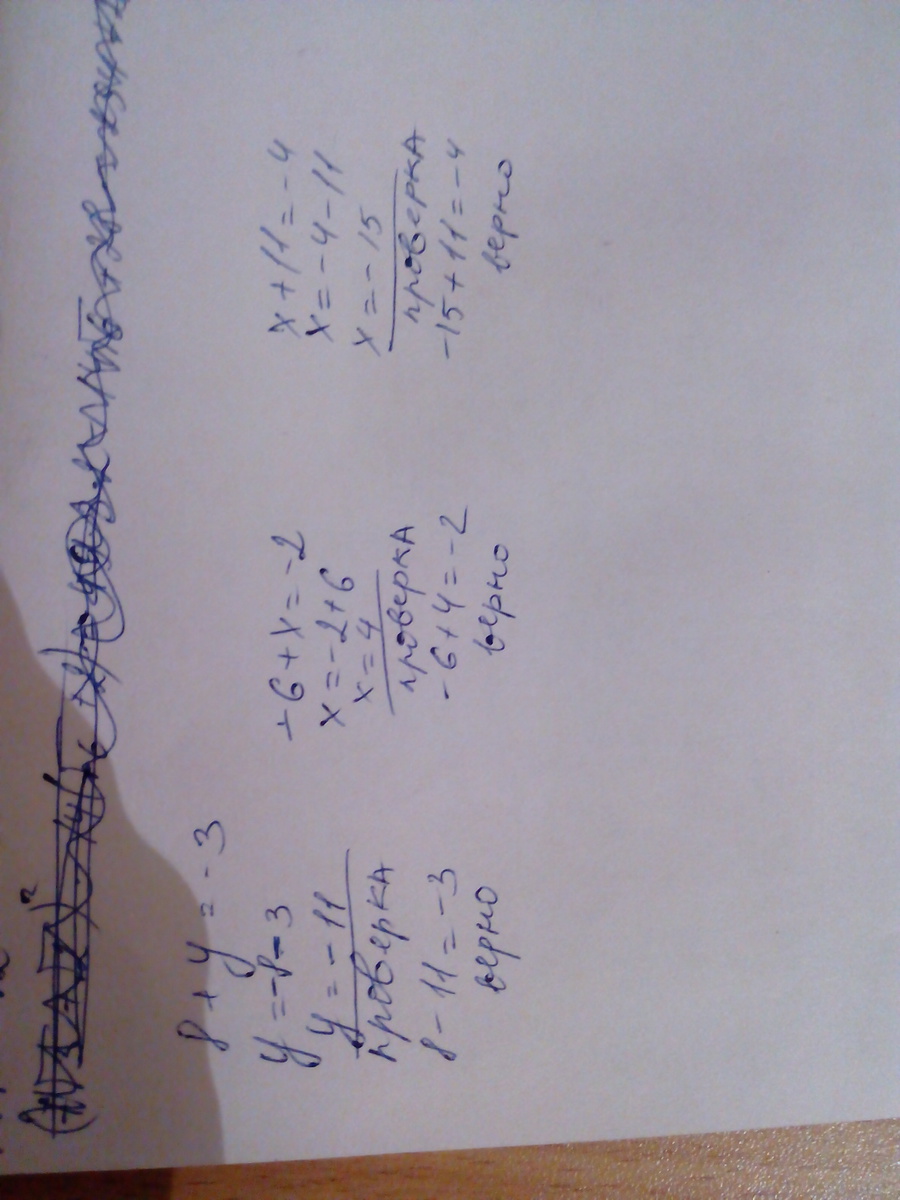 8 + y = -3
y = -8-3
y = -11
проверка
8 - 11 = -3
верно
-6 + x = -2
x = -2+6
x = 4
проверка
-6+4=-2
верно
x + 11 = -4
x = -4-11
x = -15
проверка
-15+11=-4
верно